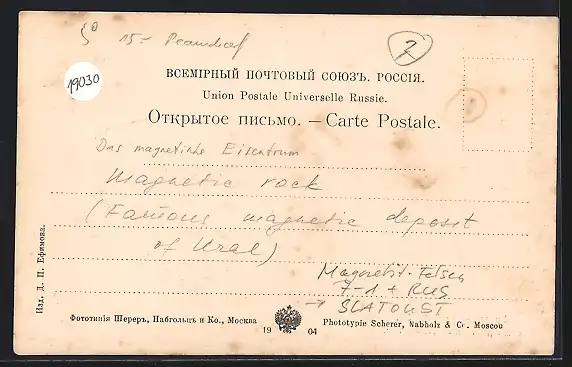 50 15-
7
19030
ВСЕМІРНЫЙ ПОЧТОВЫЙ СОЮЗЪ. РОССІЯ.
Union Postale Universelle Russie.
Открытое письмо. — Carte Postale.
Das magnetische
Magnetic rock
(Famous magnetic deposit
of Ural)
Magnetit-Felsen
7-1 + RUS
→ SLATOUST
Изд. Д. П. Ефимова.
Фототипія Шереръ, Набгольцъ и Ко., Москва
19 04
Phototypie Scherer, Nabholz & Co. Moscou